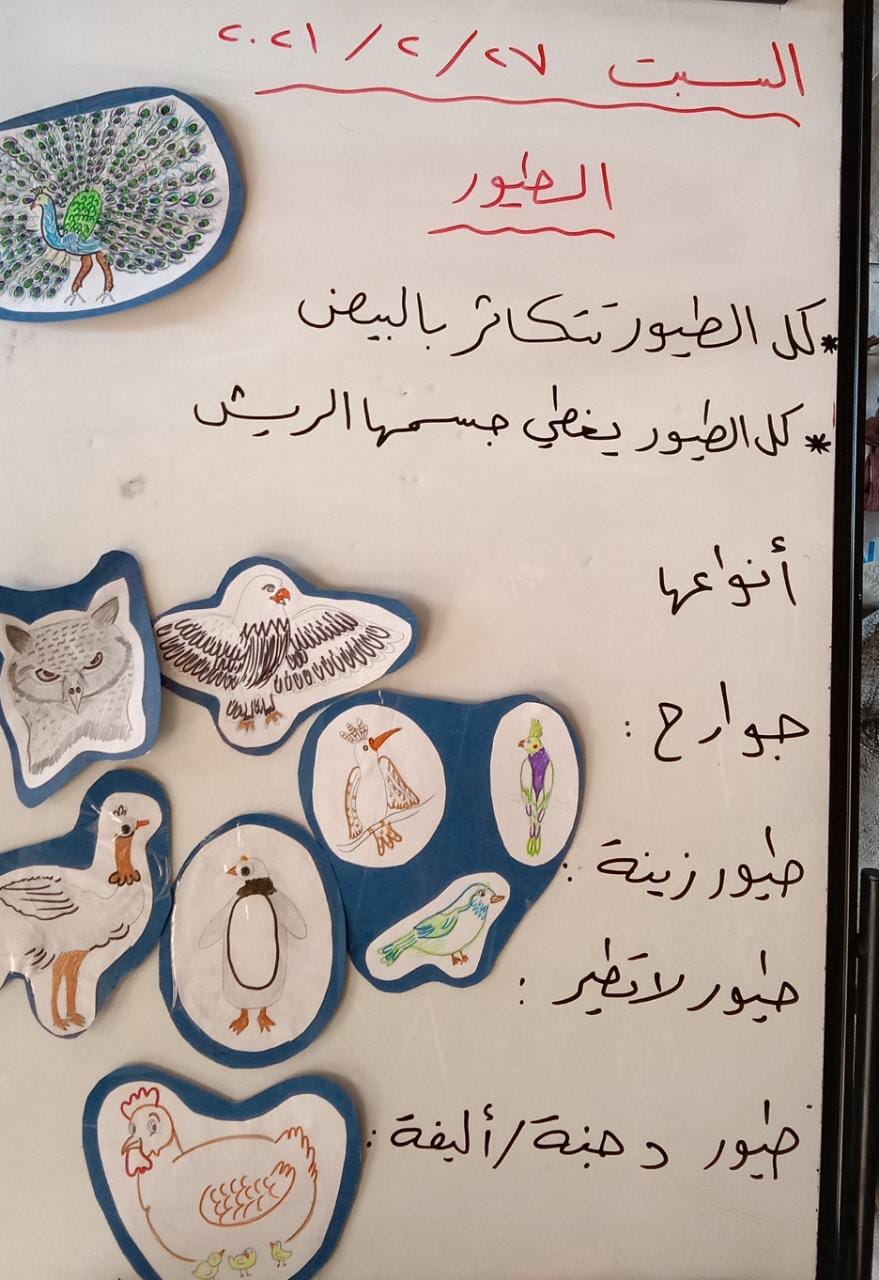 السبت ٢٧ / ٢ / ٢٠٢١
الطيور
* كل الطيور تتكاثر بالبيض
* كل الطيور يغطي جسمها الريش
أنواعها
جوارح :
طيور زينة :
طيور لا تطير :
طيور دجنة / أليفة :